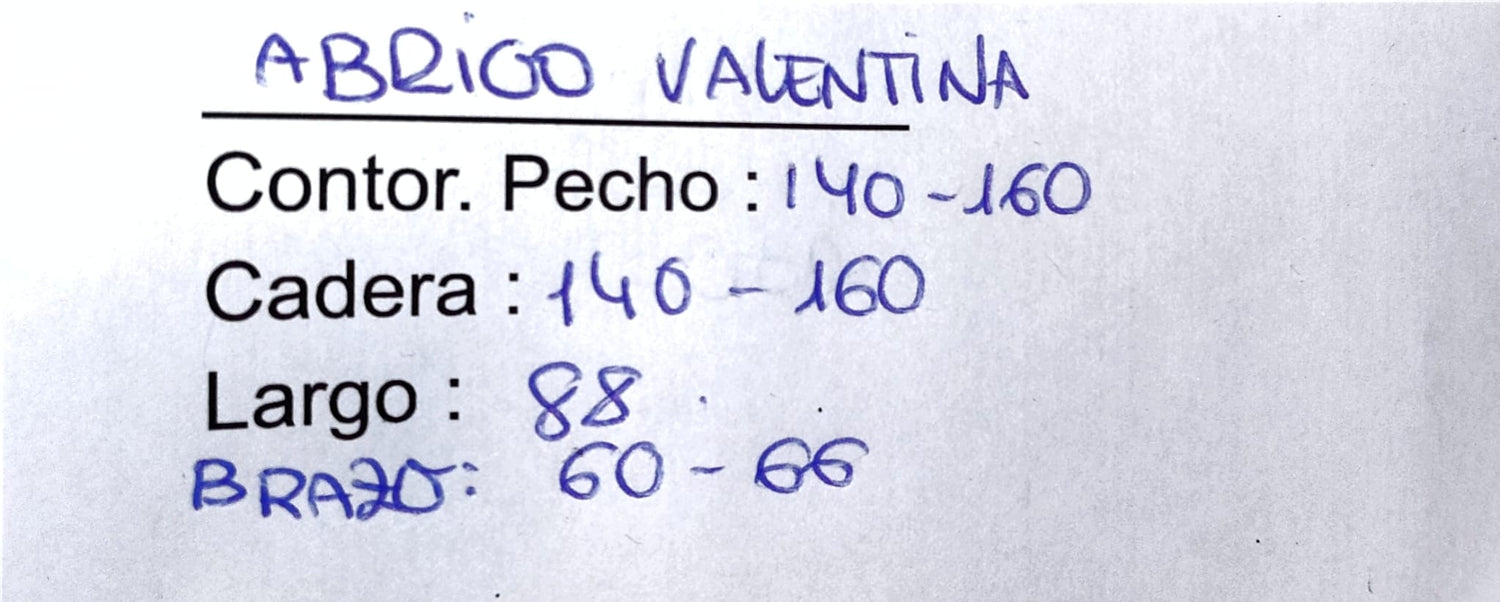 ABRIGO VALENTINA
Contor. Pecho : 140-160
Cadera : 140 - 160
Largo : 88
BRAZO: 60 - 66